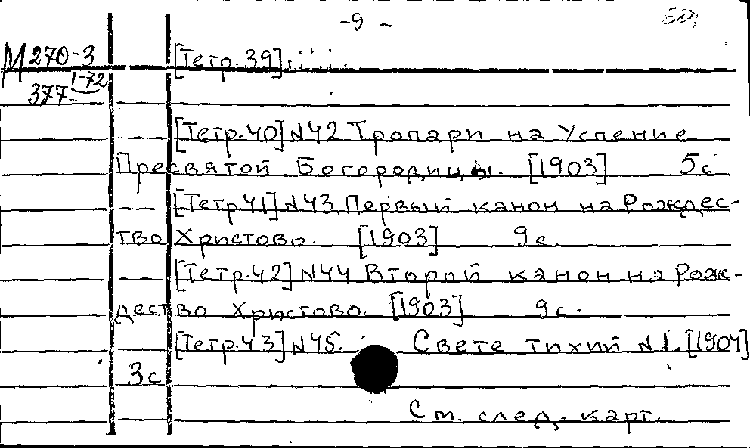 -9-
М 270-3 [Тетр.39]
1-72
377
[Тетр.40] N42 Тропари на Успение
Пресвятой Богородицы. [1903] 5с
[Тетр.41] N43 Первый канон на Рождес-
тво Христово. [1903] 9с.
[Тетр.42] N44 Второй канон на Рож-
дество Христово. [1903] 9с.
[Тетр.43] N45. Свете тихий N1. [1904]
3с
См. след. карт.